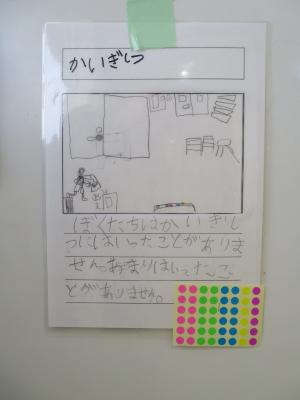 かいぎしつ
ぼくたちはかいぎし
つにはいったことがありま
せん。あまりはいったこ
とがありません。